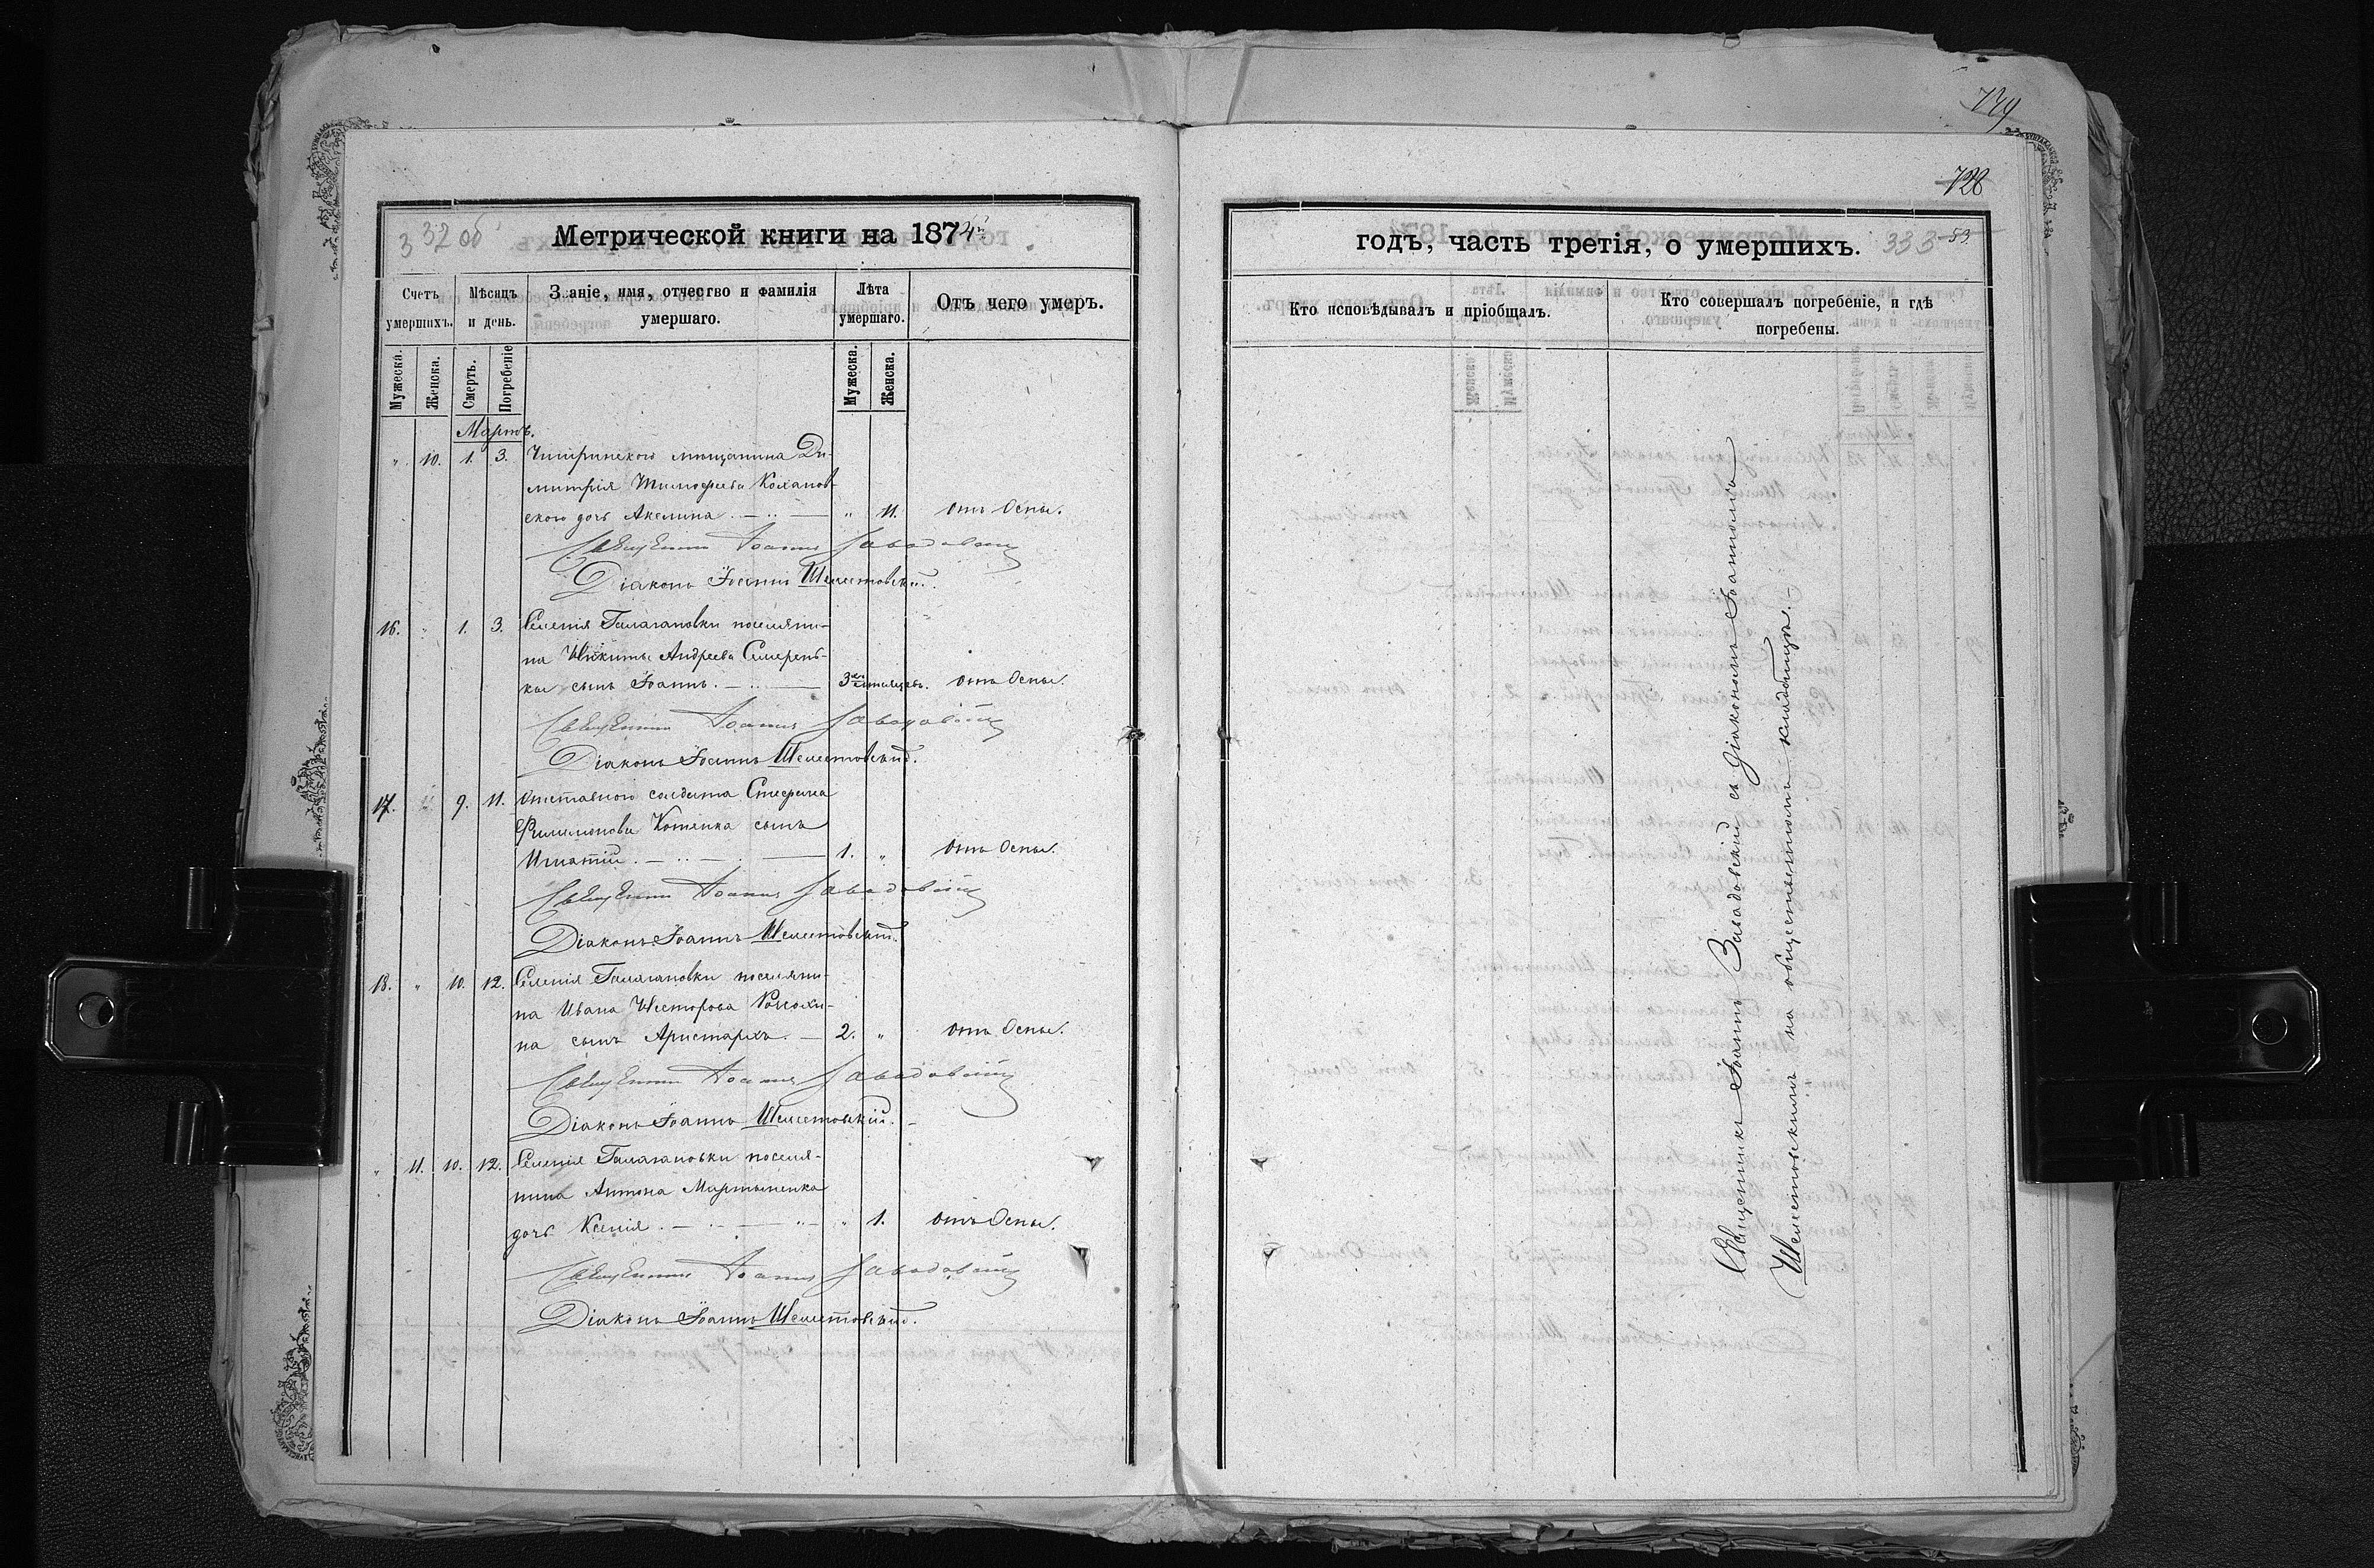 739
728
332 об
Метрической книги на 1874й
годъ, часть третія, о умершихъ.
333
53
Счетъ умершихъ.
Мѣсяцъ и день.
Званіе, имя, отчество и фамилія умершаго.
Лѣта умершаго.
Отъ чего умеръ.
Кто исповѣдывалъ и пріобщалъ.
Кто совершалъ погребеніе, и гдѣ погребены.
Мужеска.
Женска.
Смерть.
Погребеніе
Мужеска.
Женска.
Мартъ.
" 10. 1. 3. мѣщанина Ди-
митрія Тимофеева Коханов-
ского дочь Акелина " 11. отъ Оспы.
Священникъ Іоаннъ Завадовскій
Діаконъ Іоаннъ Шелестовскій.
16. " 1. 3. Селенія Галагановки поселяни-
на Никиты Андреева Семерень-
ки сынъ Іоаннъ. 3 мѣсяцевъ. отъ Оспы.
Священникъ Іоаннъ Завадовскій
Діаконъ Іоаннъ Шелестовскій.
17. " 9. 11. Отставного солдата Стефана
Филимонова Котенка сынъ
Игнатій. 1. " отъ Оспы.
Священникъ Іоаннъ Завадовскій
Діаконъ Іоаннъ Шелестовскій.
18. " 10. 12. Селенія Галагановки поселяни-
на Ивана Несторова
на сынъ Аристархъ. 2. " отъ Оспы.
Священникъ Іоаннъ Завадовскій
Діаконъ Іоаннъ Шелестовскій.
" 11. 10. 12. Селенія Галагановки поселя-
нина Антона Мартыненка
дочь Ксенія. " 1. отъ Оспы.
Священникъ Іоаннъ Завадовскій
Діаконъ Іоаннъ Шелестовскій.
Священникъ Іоаннъ Завадовскій съ діакономъ Іоанномъ
Шелестовскимъ на общественномъ кладбищѣ.